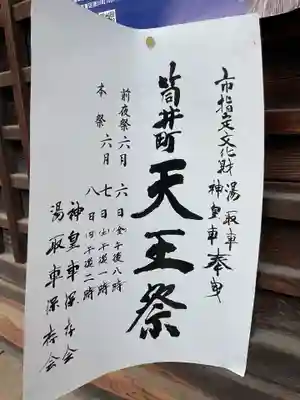 市指定文化財
湯取車
神皇車
奉曳
筒井町
天王祭
前夜祭 六月 六日(金)午後八時
本祭 六月 七日(土)午後一時
八日(日)午後二時
神皇車保存会
湯取車保存会